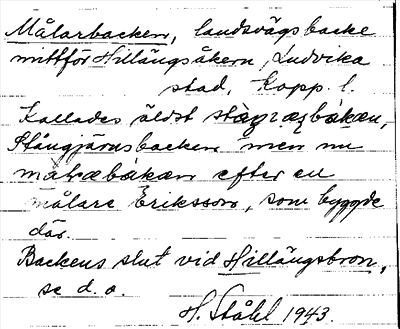 Målarbacken, landsvägsbacke
mittför Hillängsåkern, Ludvika
stad, Kopp. l.
Kallades äldst
Stångjärnsbacken men nu
efter en
målare Eriksson, som byggde
där.
Backens slut vid Hillängsbron,
se d. o.
H. Ståhl 1943.